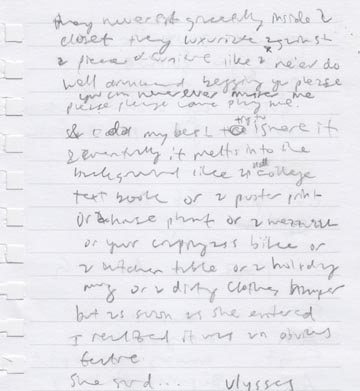 they never sit gracefully inside a
closet they luxuriate against
a piece of furniture like a ne'er do
well drunkard begging you please
you can never ever me
please please come play me.
& I do my best to try to ignore it
& eventually it melts into the
background like an old college
text book or a poster print
or a house plant or a
or your crappyass bike or
a kitchen table or a holiday
mug or a dirty clothes hamper
but as soon as she entered
I realized it was an obvious
feature
She said... Ulysses